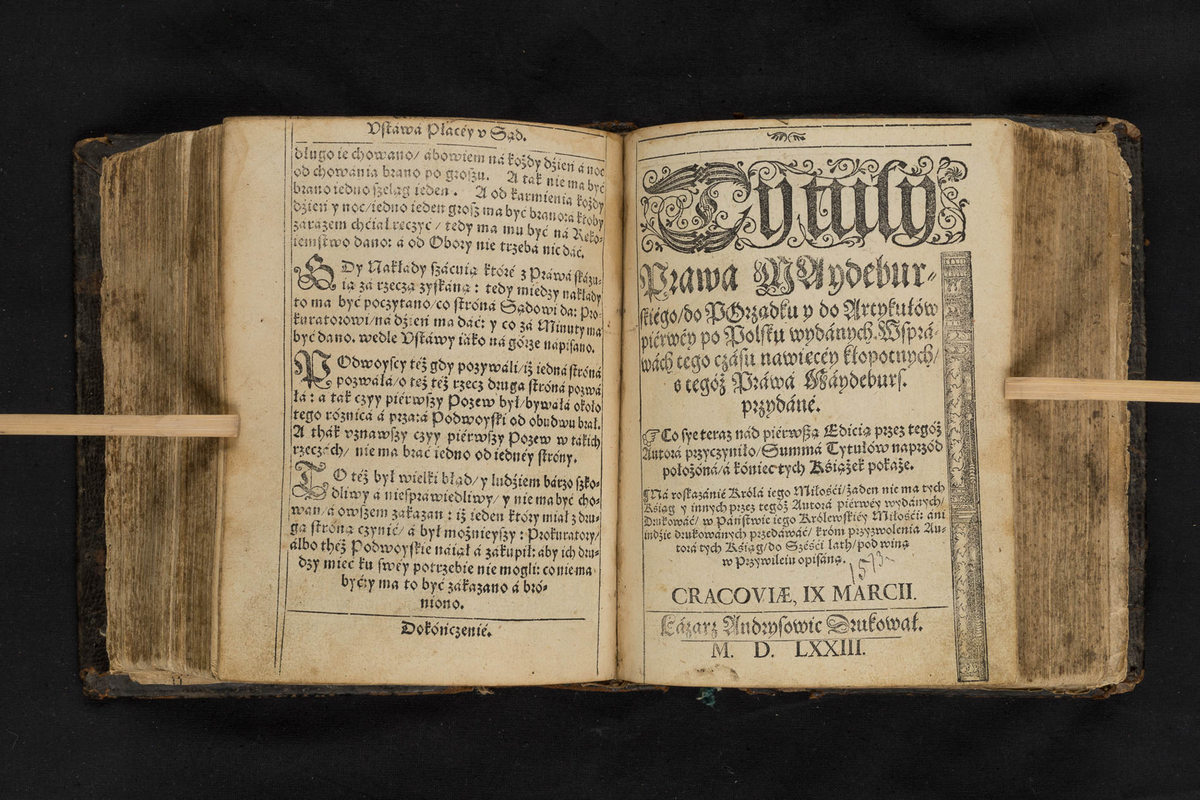 Vstáwá Płacéy v Sąd.
długo ie chowano/ ábowiem ná kożdy dźień á noc
od chowánia brano po groszu. A ták nie ma być
brano iedno szeląg ieden. A od karmienia kożdy
dźień y noc/ iedno ieden grosz ma być brano: á ktoby
zárázem chćiał ręczyć/ tedy ma mu być ná Ręko-
iemstwo dano: á od Obory nie trzebá nic dáć.
GDy Nakłády szácuią któré z Práwá skázu-
ią zá rzeczą zyskáną: tedy miedzy nakłády
to ma być poczytano/ co stroná Sądowi da: Pro-
kuratorowi/ ná dźień ma dáć: y co zá Minuty ma
być dano. wedle Vstáwy iáko ná górze nápisano.
POdwoyscy téż gdy pozywáli/ iż iedná stroná
pozwáłá/ o téż też rzecz druga stroná pozwá
łá: á ták czyy piérwszy Pozew był/ bywáłá około
tego róznicá á przará Podwoyski od obudwu brał.
A thák vznawszy czyy piérwszy Pozew w tákich
rzeczách/ nie ma bráć iedno od iednéy strony.
TO téż był wielki błąd/ y ludźiem bárzo szko-
dliwy á niespráwiedliwy/ y nie ma być cho-
wan/ á owszem zákazan: iż ieden który miał z dru-
gą stroną czynić/ á był możnieyszy: Prokuratory/
álbo théż Podwoyskie náiął á zákupił: áby ich dru-
dzy mieć ku swéy potrzebie nie mogli: co nie ma
być/ty ma to być zákazano á bró-
niono.
Dokończenié.
Tytuły
Prawa MAydebur-
skiégo/ do POrządku y do Artykułów
piérwéy po Polsku wydánych. Wsprá-
wách tego czásu nawiecéy kłopotnych/
s tegóż Práwá Máydeburs.
przydáné.
Co sye teraz nád piérwszą Edicią przez tegóż
Autorá przyczyniło/ Summá Tytułów naprzód
położóna/ á kóniec tych Książek pokaże.
Ná roskazánié Królá iego Miłośći/ żaden nie ma tych
Kśiąg y innych przez tegóż Autorá piérwéy wydánych/
Drukowáć/ w Páństwie iego Królewskiéy Miłośći: áni
indźie drukowánych przedáwáć/ króm przyzwolenia Au-
torá tych Kśiąg/ do Sześći lath/ pod winą
w Przywileiu opisáną.
CRACOVIÆ, IX MARCII.
Łázarz Andrysowic Drukował.
M. D. LXXIII.